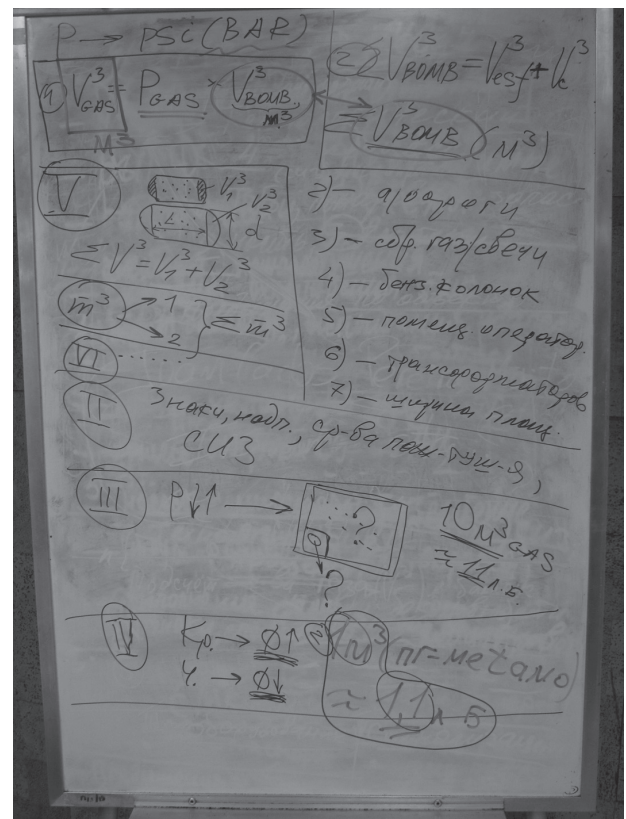 P → PSi (BAR)
1) V³GAS = PGAS × V³BOMB
м³ м³
2) ΣV³BOMB = V³esf + V³c
V³BOMB (м³)
V
V₁³
V₂³
L d
ΣV³ = V₁³ + V₂³
m³ 1
2 Σm³
VI ......
2) –
3) – сбр. газ/свечи
4) – бенз. колонок
5) – помещ. оператор.
6) –
7) – ширины площ.
II Знаки, надп., ср-ва пож-туш-я,
СИЗ
III P↓↑ → ?
?
10 м³ GAS
≈ 11 л.Б.
IV Кр. → Ø↑
Ч. → Ø↓
2) 1м³ (пг-метано)
≈ 1,1 л Б